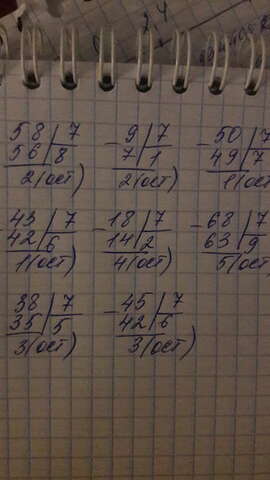 58 | 7
56 | 8
2(ост)
- 9 | 7
7 | 1
2(ост)
- 50 | 7
49 | 7
1(ост
43 | 7
42 | 6
1(ост)
- 18 | 7
14 | 2
4(ост)
- 68 | 7
63 | 9
5(ост)
38 | 7
35 | 5
3(ост)
- 45 | 7
42 | 6
3(ост)